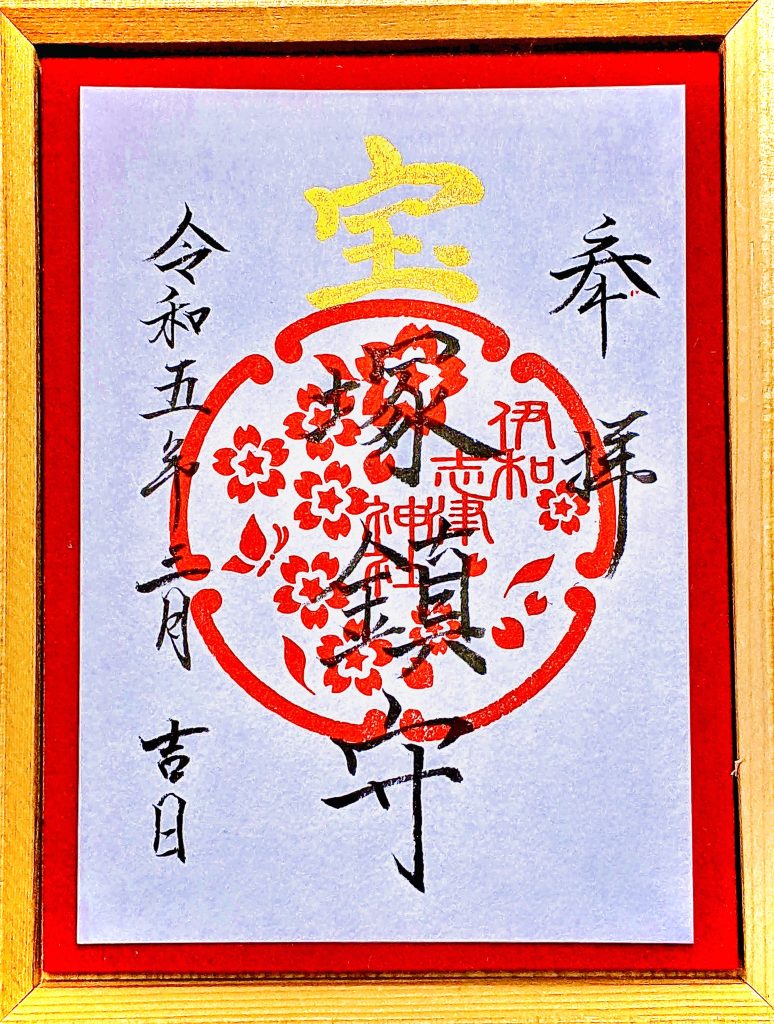 奉拝
伊和
志津
神社
宝塚鎮守
令和五年三月吉日